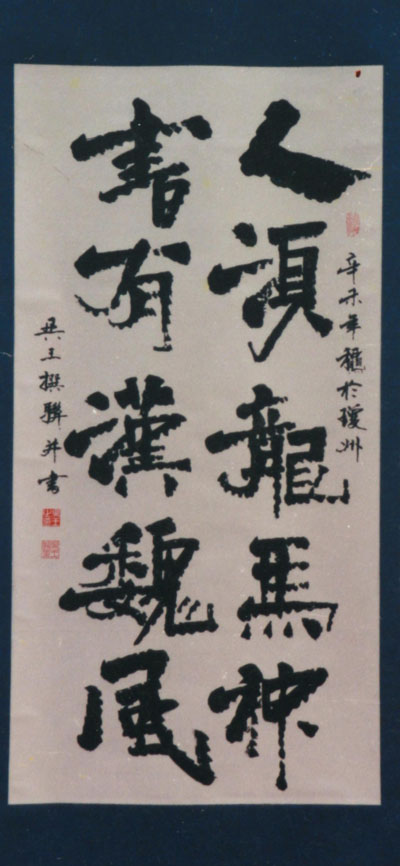 辛未年龝於瓊州
人須龍馬神
書有漢魏風
撰聯并書